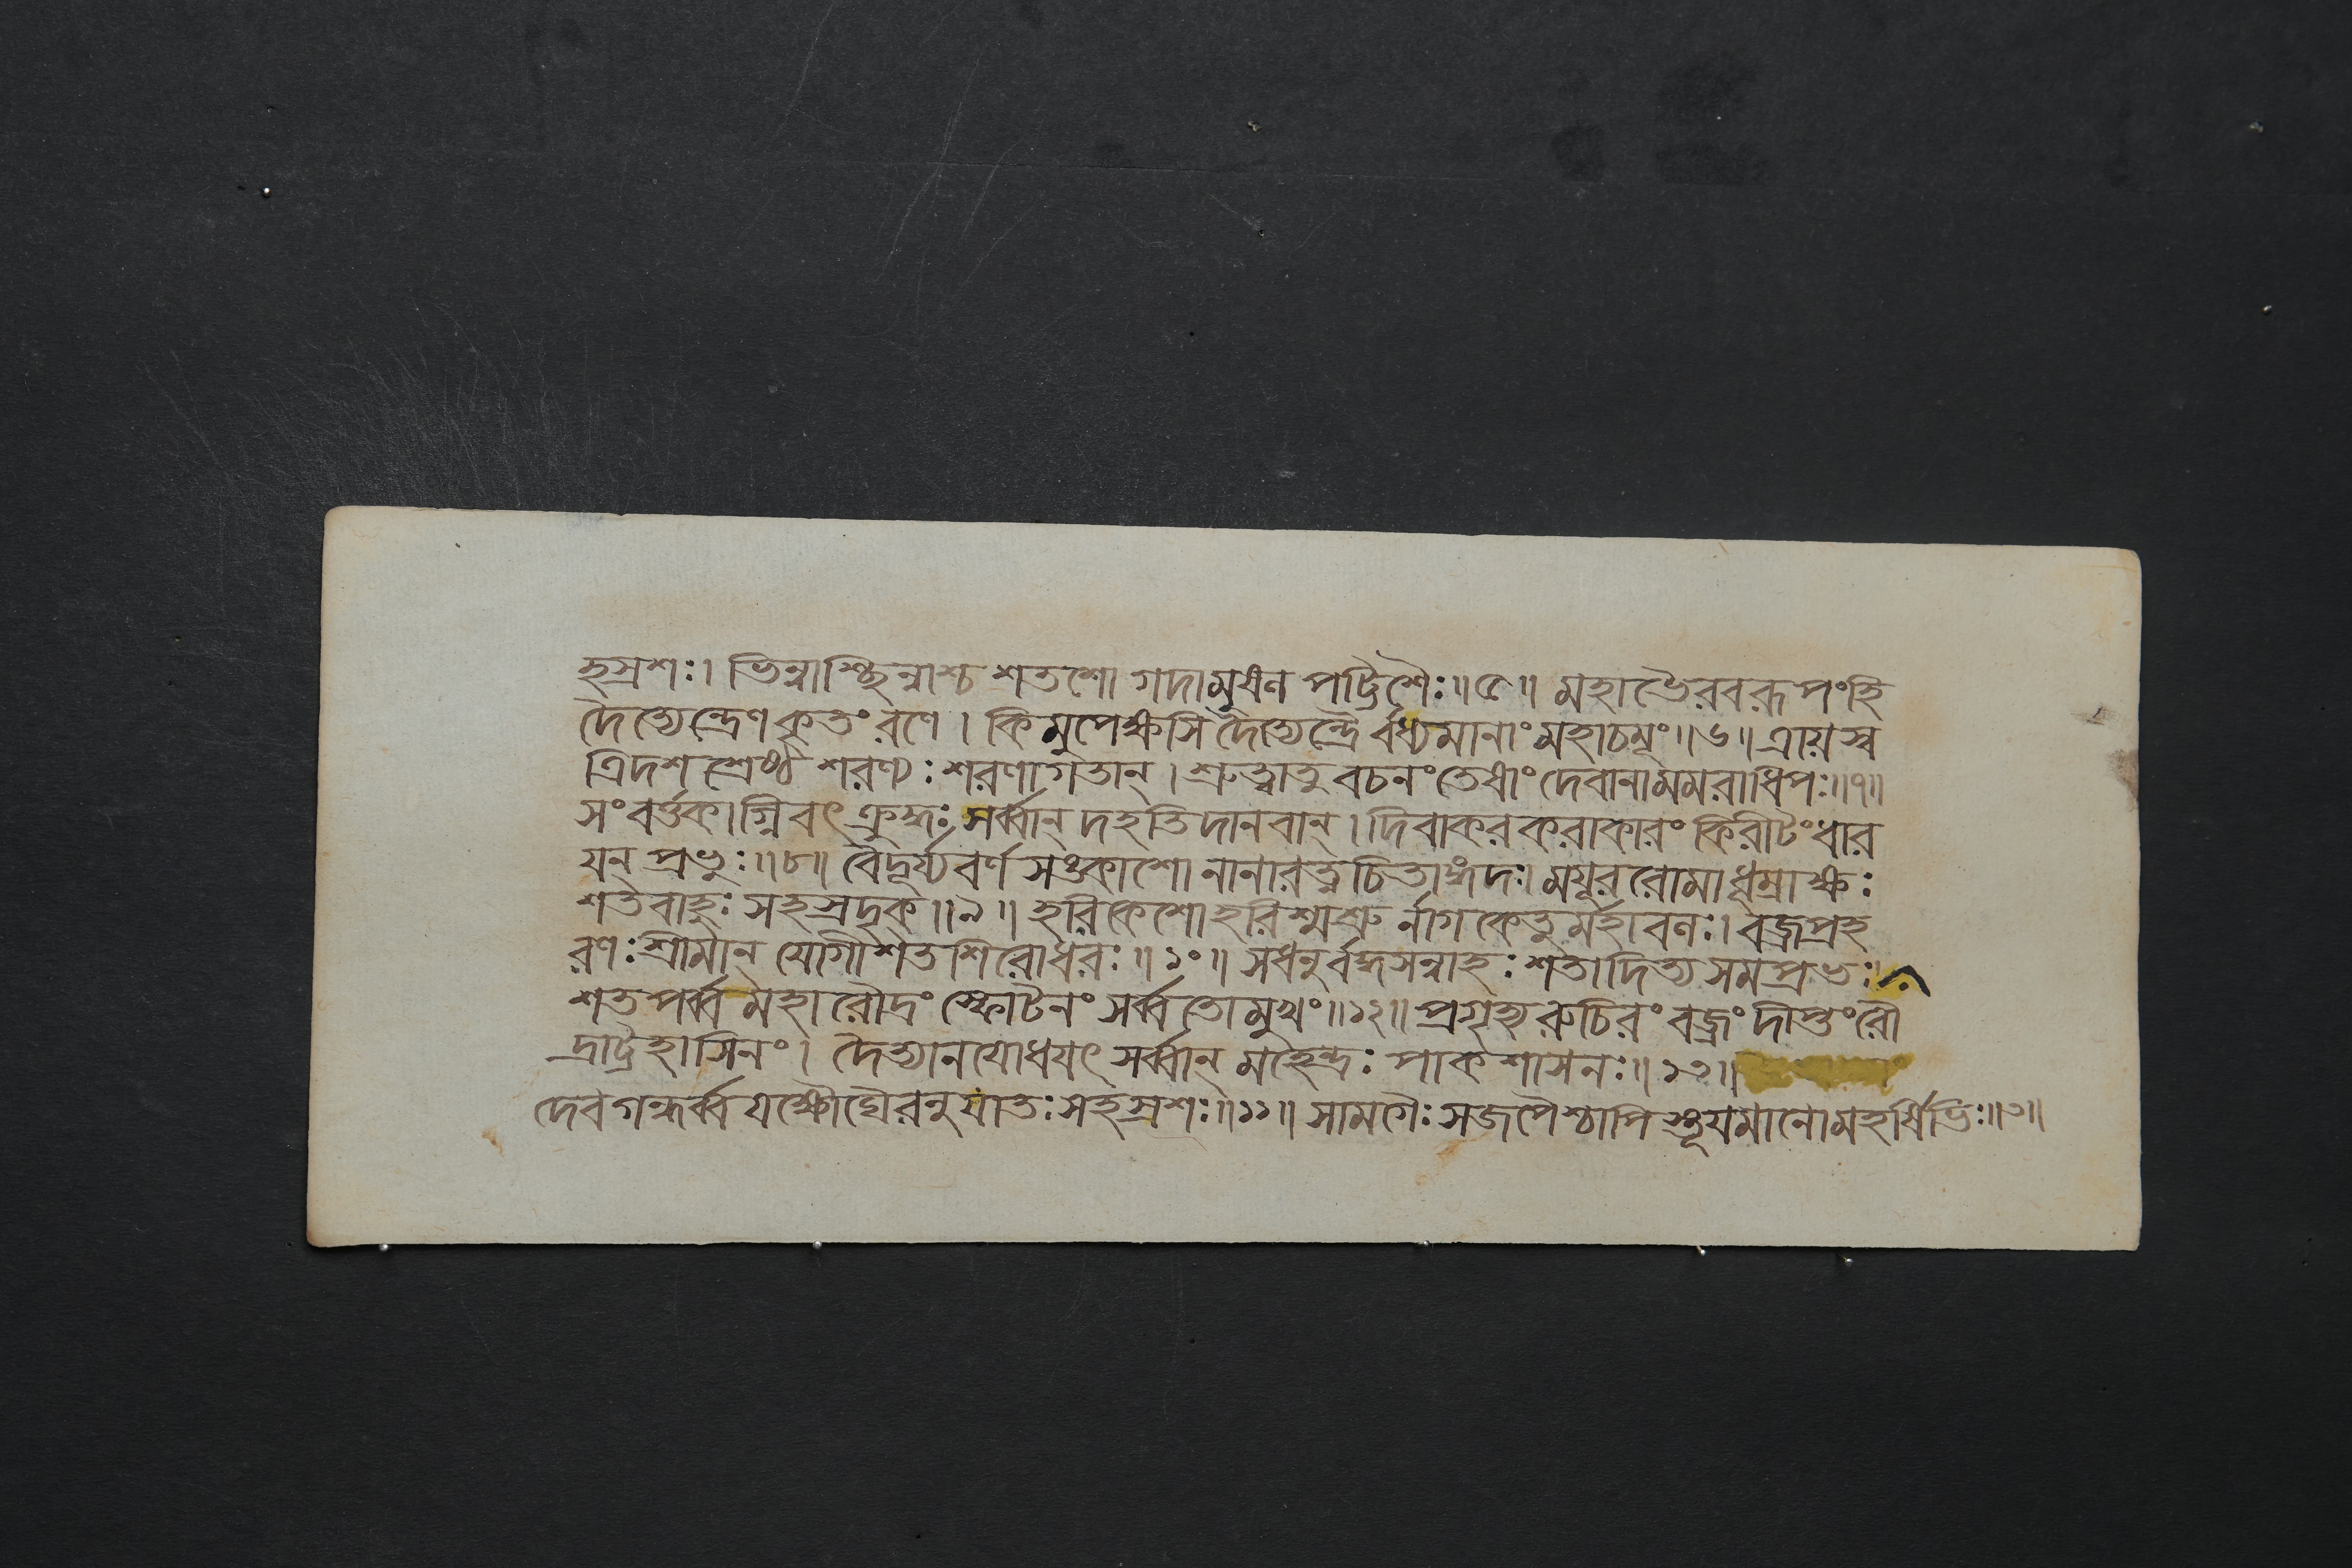 হস্রশঃ। ভিন্নাশ্ছিন্নাশ্চ শতশো গদামুষণ পট্টিশৈঃ॥৫॥ মহাভৈরবরূপংহি
দৈত্যেন্দ্রেণ কৃতং রণে। কিমুপেক্ষসি দৈত্যেন্দ্রৈ র্বধ্যমানাং মহাচমূং॥৬॥ ত্রায়স্ব
ত্রিদশ শ্রেষ্ঠ শরণ্যঃ শরণাগতান্। শ্রুত্বাতু বচনং তেষাং দেবানামমরাধিপঃ॥৭॥
সংবর্ত্তকাগ্নিবৎ ক্রুদ্ধঃ সর্ব্বান্ দহতি দানবান্। দিবাকর করাকারং কিরীটং ধার
য়ন্ প্রভুঃ॥৮॥ বৈদূর্য্যবর্ণ সঙ্কাশো নানারত্নচিতাঙ্গদঃ। ময়ূররোমাধূম্রাক্ষঃ
শতবাহুঃ সহস্রদৃক্॥৯॥ হরিকেশোহরিশ্মশ্রু র্নাগকেতু র্মহাবণঃ। বজ্রপ্রহ
রণঃ শ্রীমান্ যোগীশতশিরোধরঃ॥১০॥ সধনুর্বদ্ধসন্নাহঃ শতাদিত্য সমপ্রভঃ।
শতপর্ব্ব মহারৌদ্রং স্ফোটনং সর্ব্বতোমুখং॥১২॥ প্রগৃহ্য রুচিরং বজ্রং দীপ্তং রৌ
দ্রাট্টহাসিনং। দৈত্যানযোধযৎ সর্ব্বান্ মহেন্দ্রঃ পাকশাসনঃ॥১৩॥
দেবগন্ধর্ব্ব যক্ষৌঘৈরনুযাতঃ সহস্রশঃ॥১১॥ সামগৈঃ সজপৈশ্চাপি স্তূযমানোমহর্ষিভিঃ॥৩॥